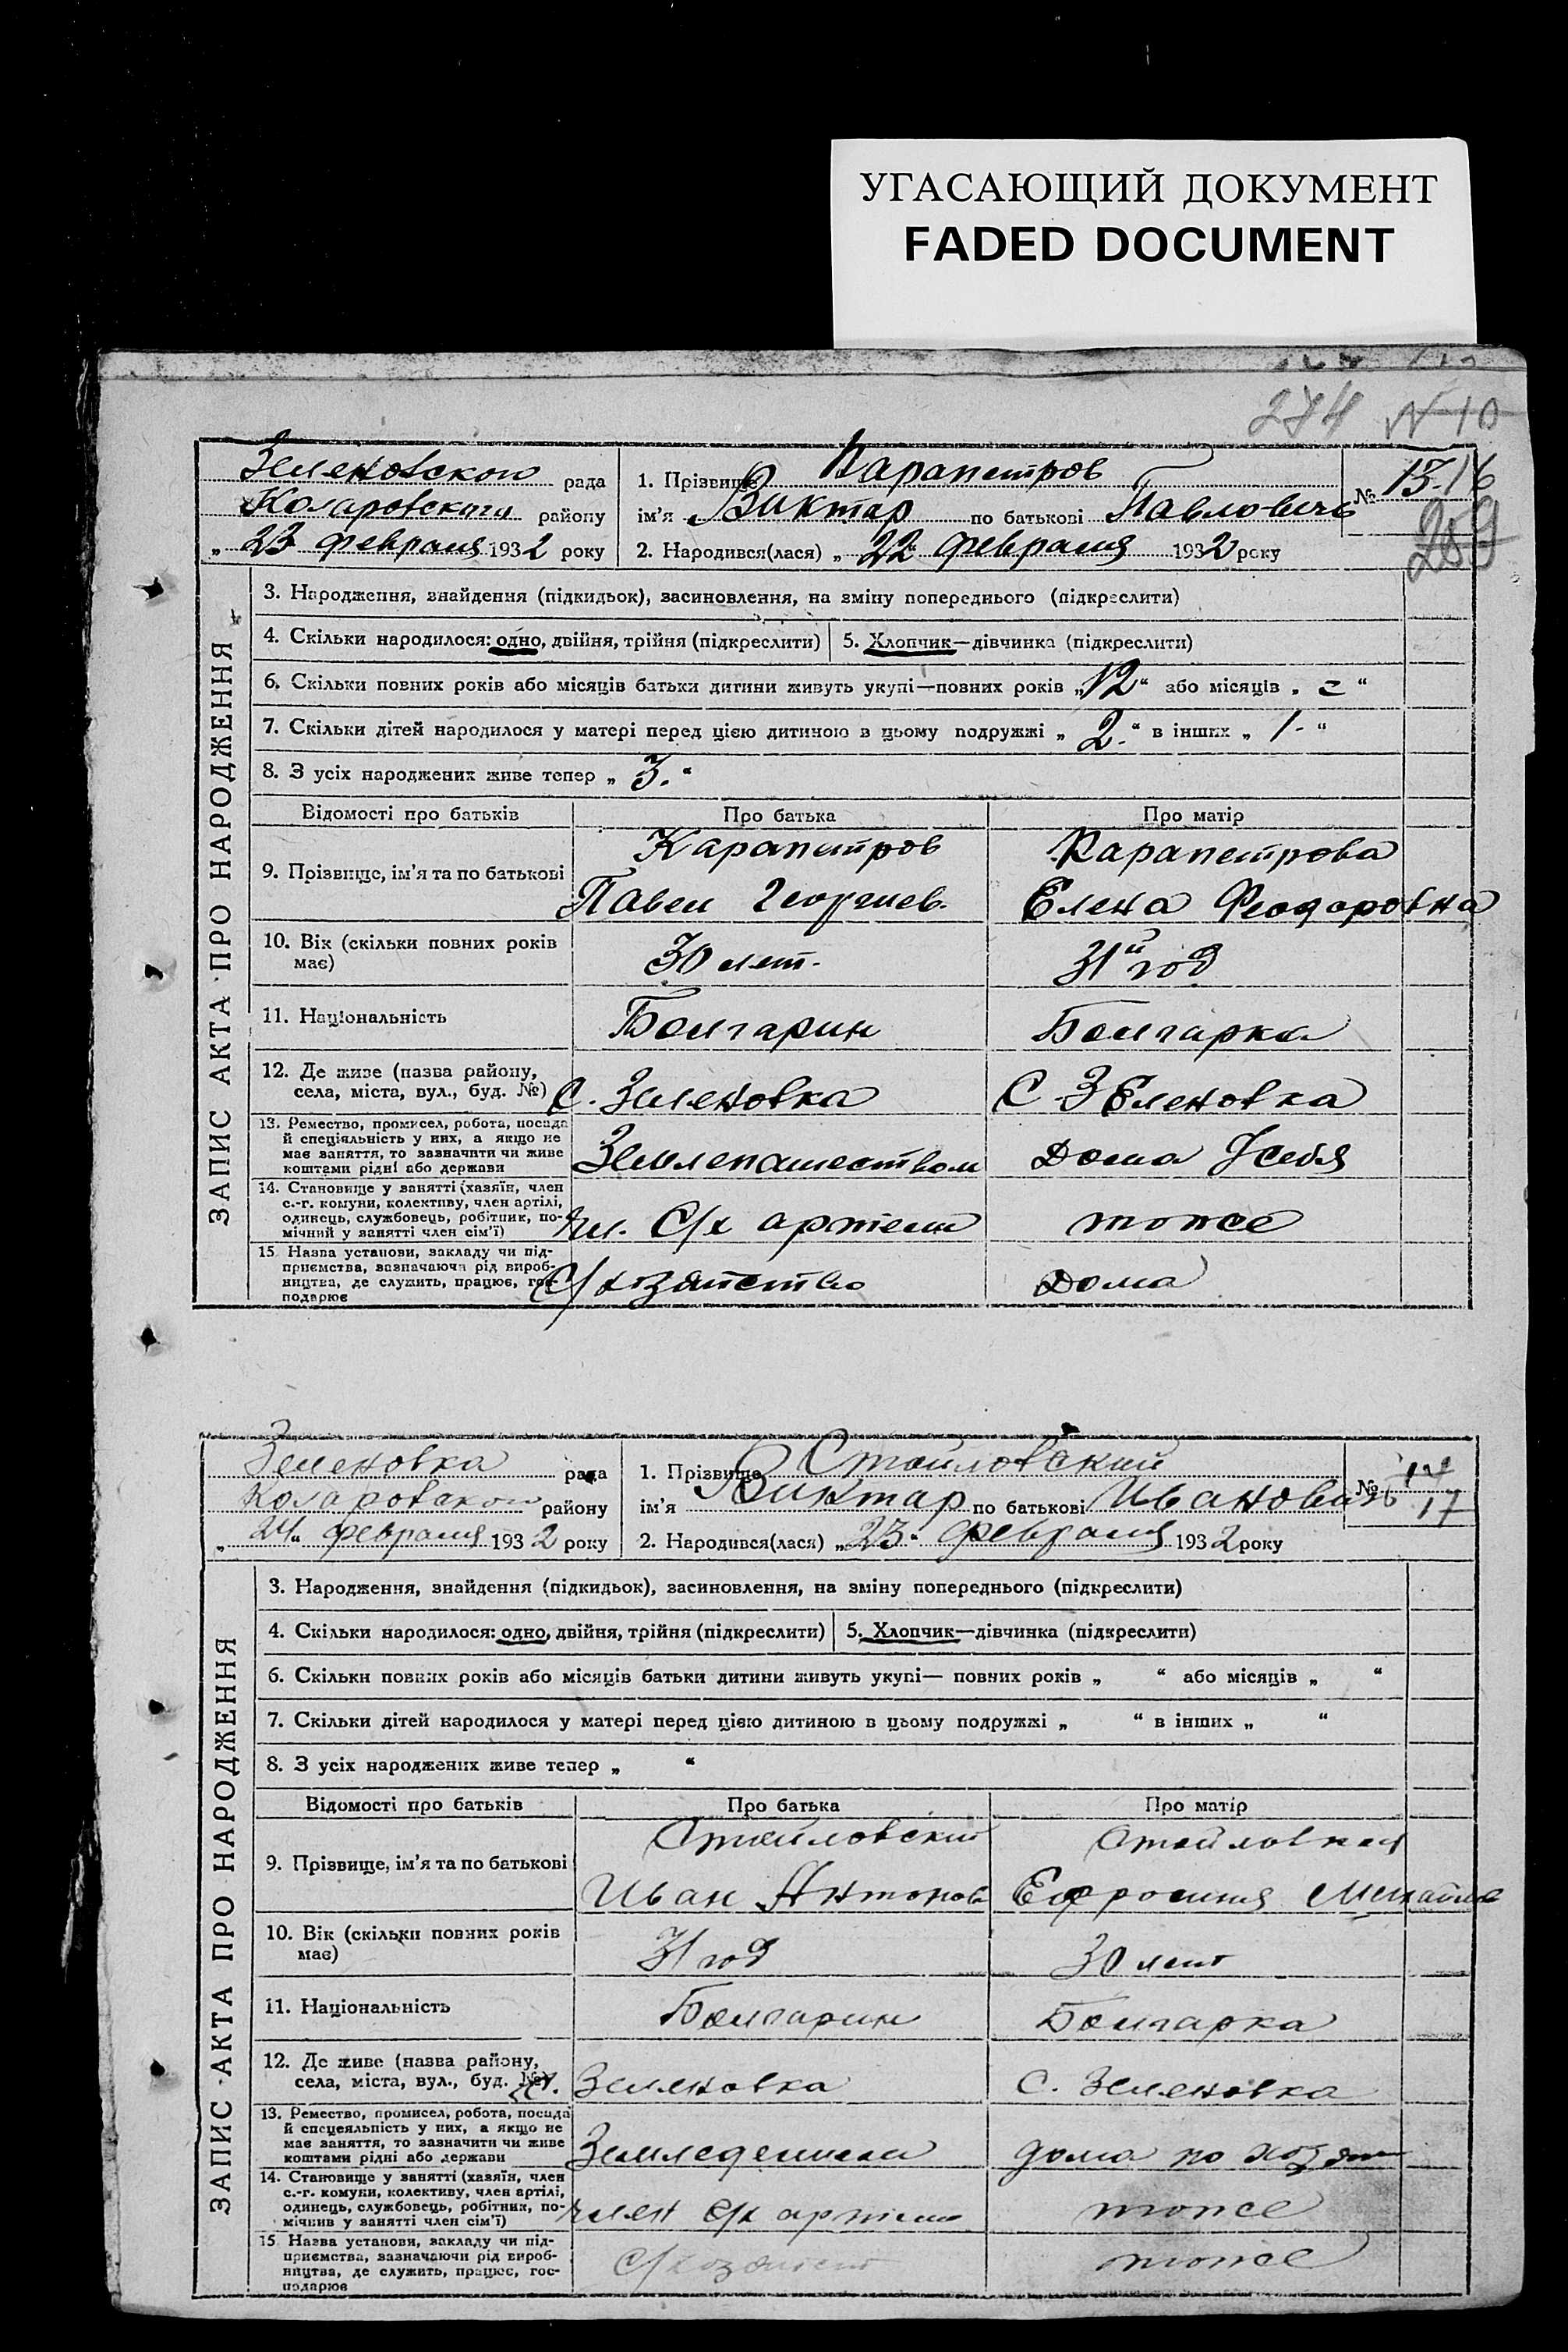 УГАСАЮЩИЙ ДОКУМЕНТ
FADED DOCUMENT
274 N 10
Зеленовской рада
Коларовского району
„ 23 февраля 1932 року
1. Прізвище Карапетров
ім'я Виктар по батькові Павловичь
2. Народився(лася) „ 22 " февраля 1932 року
№ 13. 16
259
ЗАПИС АКТА ПРО НАРОДЖЕННЯ
3. Народження, знайдення (підкидьок), засиновлення, на зміну попереднього (підкреслити)
4. Скільки народилося: одно, двійня, трійня (підкреслити) 5. Хлопчик—дівчинка (підкреслити)
6. Скільки повних років або місяців батьки дитини живуть укупі—повних років „ 12 “ або місяців „ - “
7. Скільки дітей народилося у матері перед цією дитиною в цьому подружжі „ 2. “ в інших „ 1 - “
8. З усіх народжених живе тепер „ 3. “
Відомості про батьків Про батька Про матір
9. Прізвище, ім'я та по батькові Карапетров Павел Георгиев. Карапетрова Елена Феодоровна
10. Вік (скільки повних років має) 30 лет. 31й год
11. Національність Болгарин Болгарка
12. Де живе (назва району, села, міста, вул., буд. №) С. Зеленовка С Зеленовка
13. Ремество, промисел, робота, посада
й спеціяльність у них, а якщо не
має заняття, то зазначити чи живе
коштами рідні або держави Землепашеством Дома Усебя
14. Становище у занятті (хазяїн, член
с.-г. комуни, колективу, член артілі,
одинець, службовець, робітник, по-
мічний у занятті член сім'ї) чл. С/х артели тоже
15. Назва установи, закладу чи під-
приємства, зазначаючи рід вироб-
ництва, де служить, працює, гос-
подарює С/хозяйство Дома
Зеленовка рада
Коларовской району
„ 24 “ февраля 1932 року
1. Прізвище Стойловский
ім'я Виктар по батькові Иванович
2. Народився(лася) „ 23 “ февраля 1932 року
№ 14
17
ЗАПИС АКТА ПРО НАРОДЖЕННЯ
3. Народження, знайдення (підкидьок), засиновлення, на зміну попереднього (підкреслити)
4. Скільки народилося: одно, двійня, трійня (підкреслити) 5. Хлопчик—дівчинка (підкреслити)
6. Скільки повних років або місяців батьки дитини живуть укупі— повних років „ “ або місяців „ “
7. Скільки дітей народилося у матері перед цією дитиною в цьому подружжі „ “ в інших „ “
8. З усіх народжених живе тепер „ “
Відомості про батьків Про батька Про матір
9. Прізвище, ім'я та по батькові Стойловский Иван Антонов Стойловская Ефросиния Михайло
10. Вік (скільки повних років має) 31 год 30 лет
11. Національність Болгарин Болгарка
12. Де живе (назва району, села, міста, вул., буд. №) с. Зеленовка С. Зеленовка
13. Ремество, промисел, робота, посада
й спецеяльність у них, а якщо не
має заняття, то зазначити чи живе
коштами рідні або держави дома по
14. Становище у занятті (хазяїн, член
с.-г. комуни, колективу, член артілі,
одинець, службовець, робітник, по-
мічнив у занятті член сім'ї) член с/х артели тоже
15. Назва установи, закладу чи під-
приємства, зазначаючи рід вироб-
ництва, де служить, працює, гос-
подарює С/хозяйст тоже